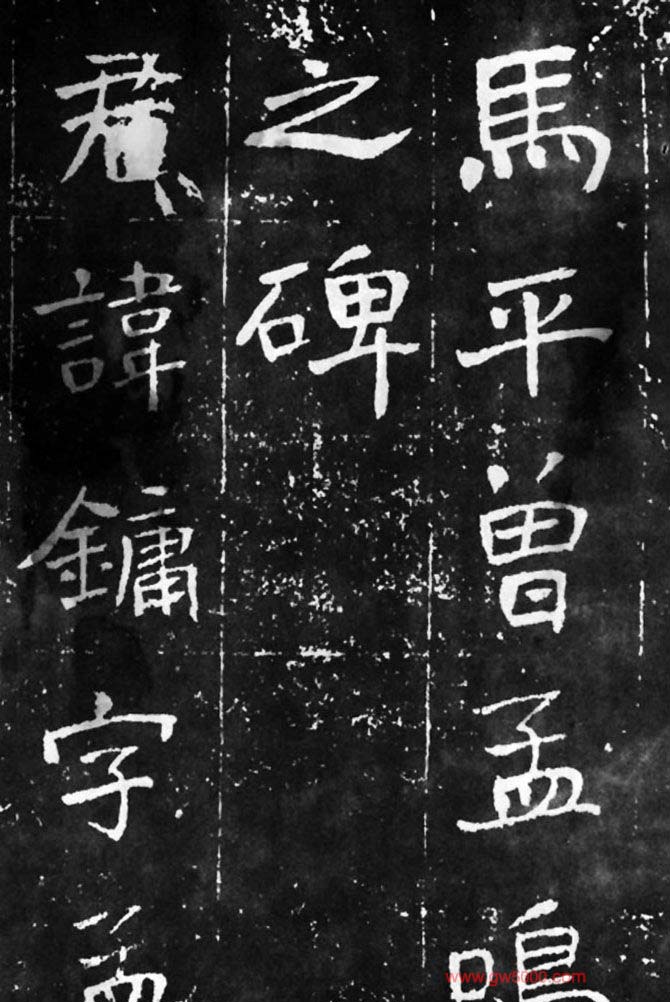 馬平曾孟鳴
之碑
君諱鏞字孟
www.gw5000.com